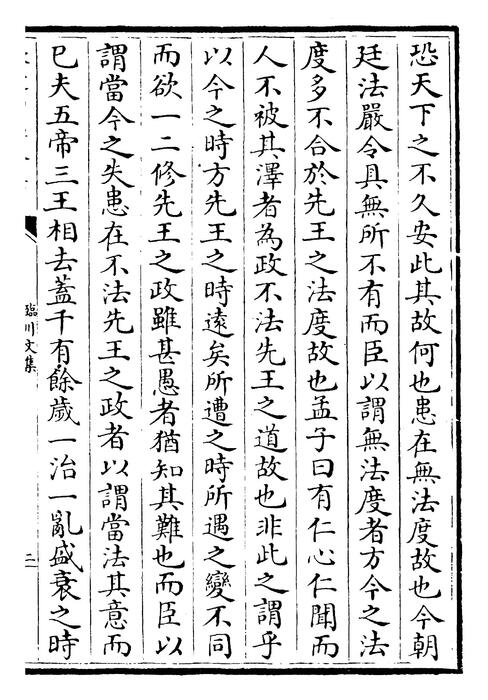 恐天下之不久安此其故何也患在無法度故也今朝
廷法嚴令具無所不有而臣以謂無法度者方今之法
度多不合於先王之法度故也孟子曰有仁心仁聞而
人不被其澤者為政不法先王之道故也非此之謂乎
以今之時方先王之時遠矣所遭之時所遇之變不同
而欲一二修先王之政雖甚愚者猶知其難也而臣以
謂當今之失患在不法先王之政者以謂當法其意而
已夫五帝三王相去蓋千有餘歲一治一亂盛衰之時
臨川文集